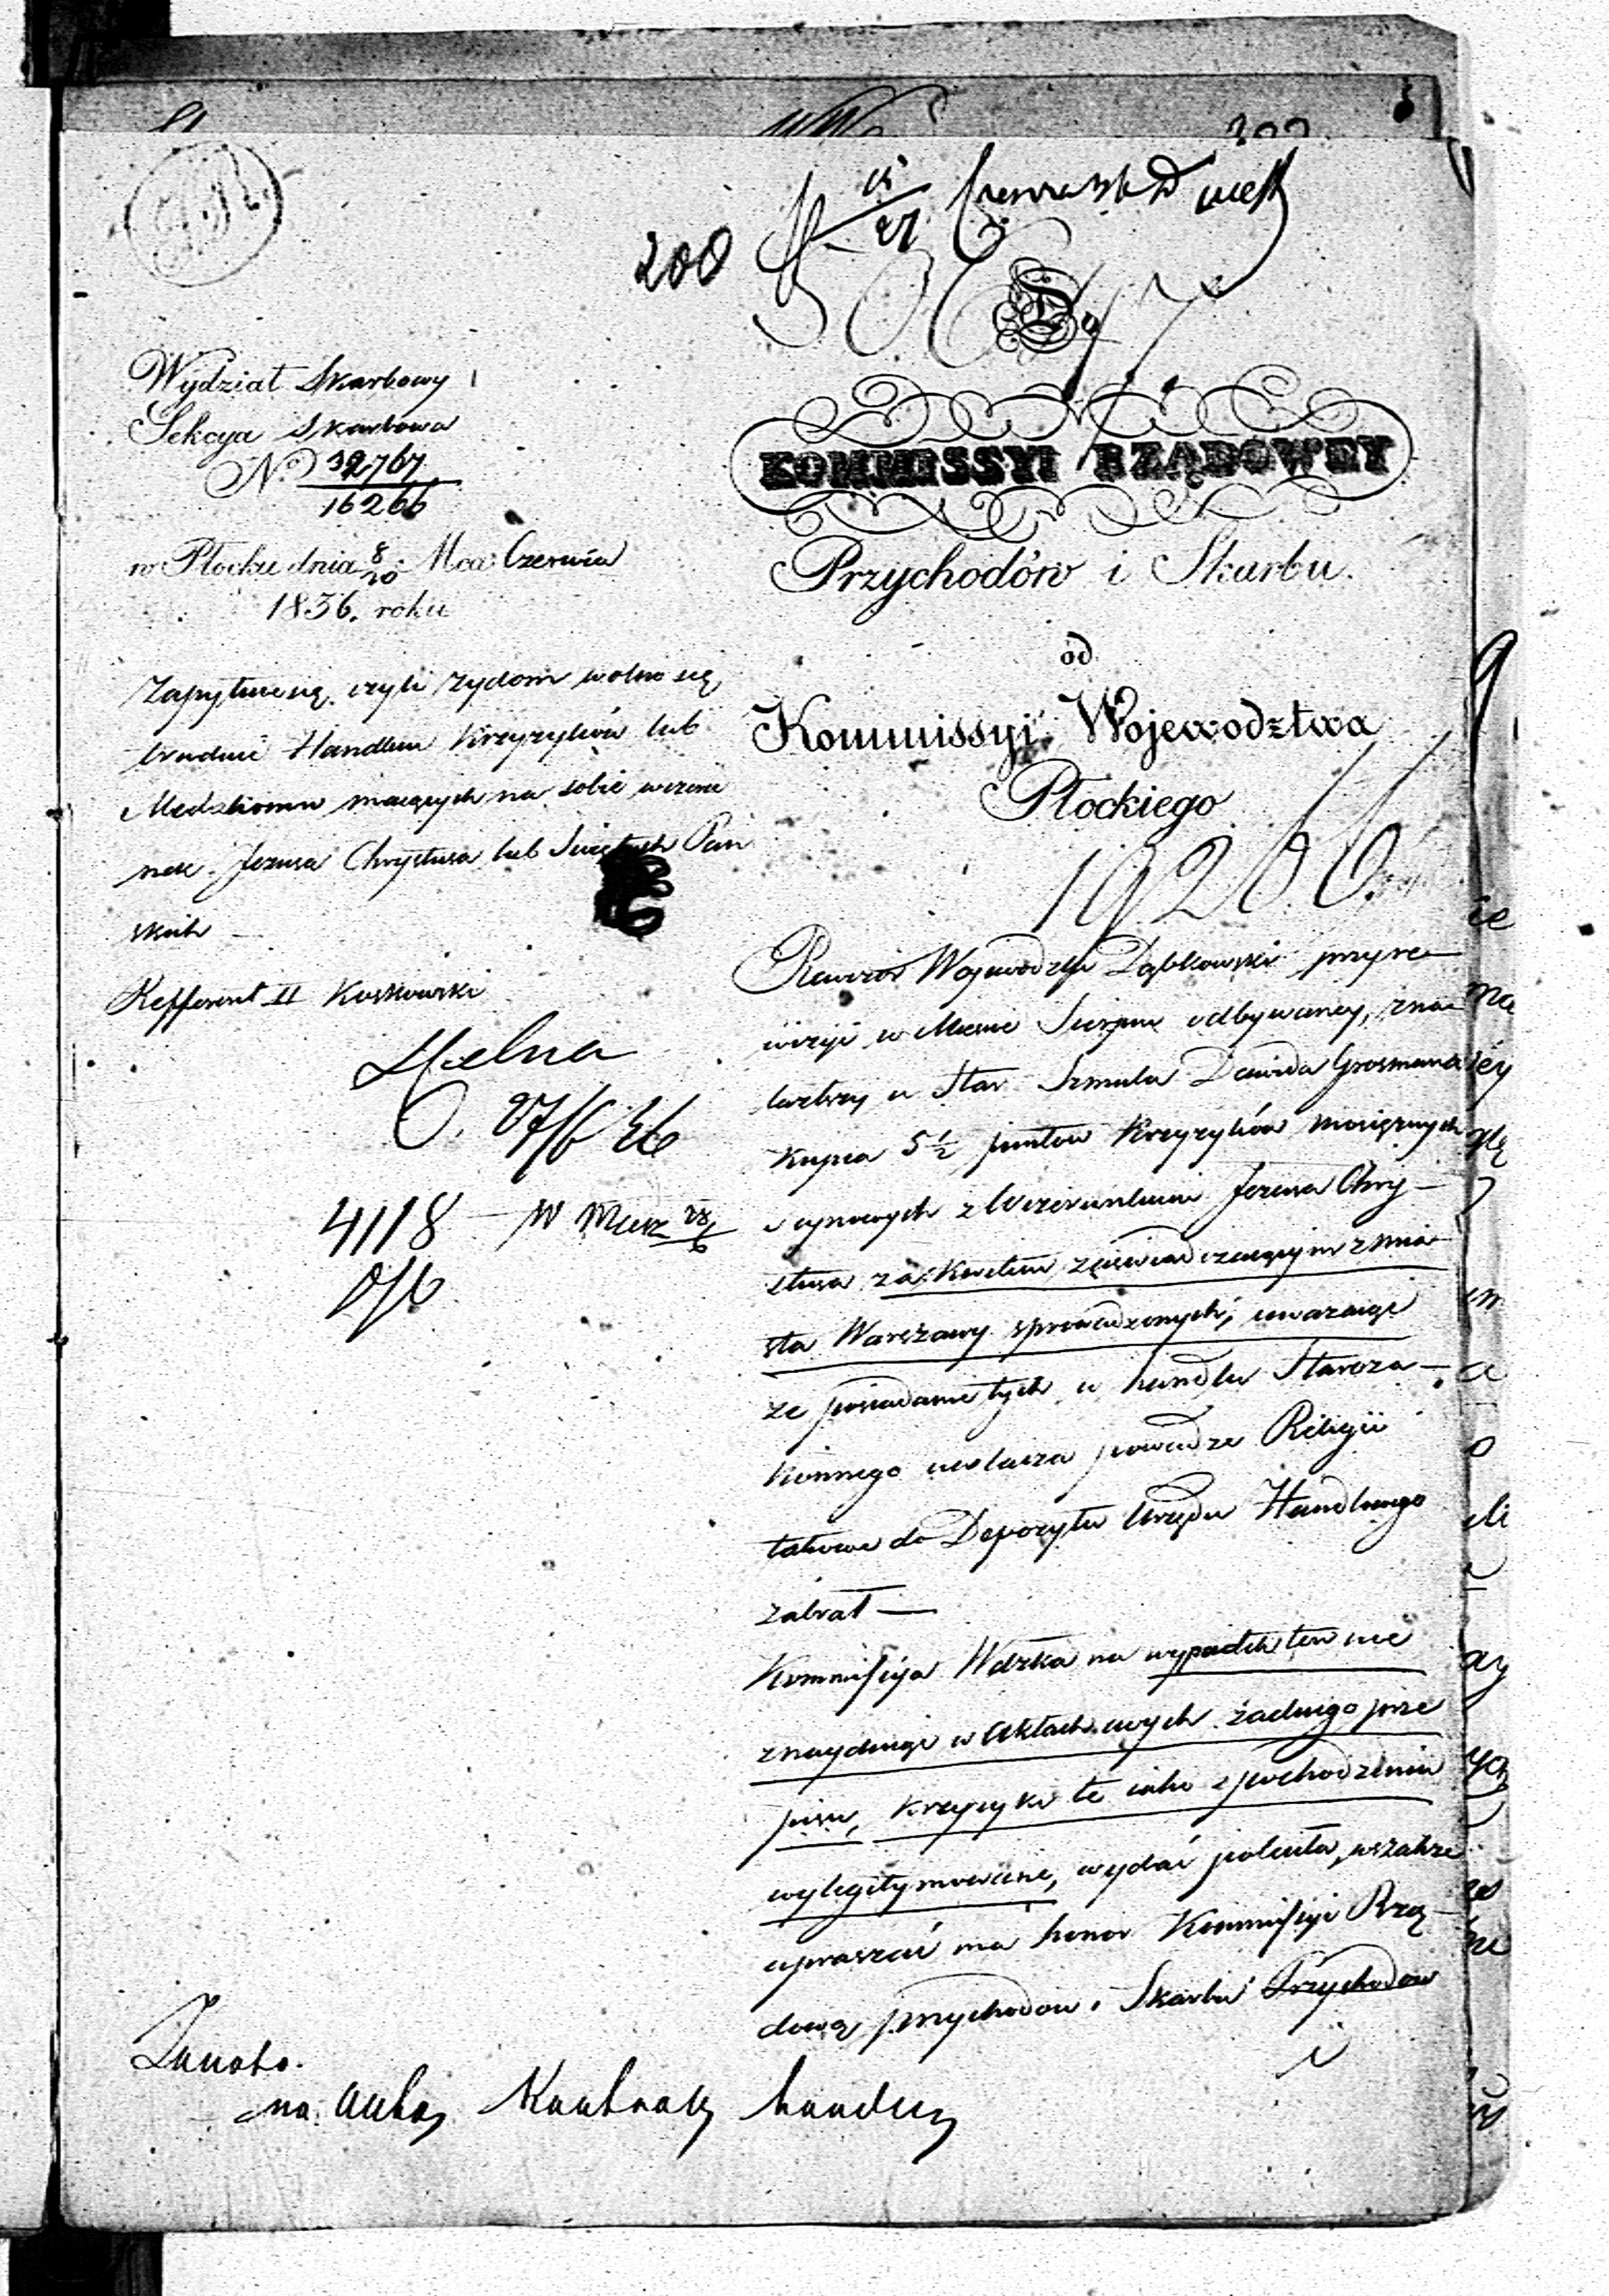 200
Do
KOMMISSYI RZĄDOWEY
Przychodów i Skarbu.
od
Kommissyi Wojewodztwa
Płockiego
Wydział Skarbowy
Sekcya Skarbowa
No 32767
16266
w Płocku dnia 8/20 Mca Czerwca
1836. roku
Zapytuie się, czyli żydom wolno się
trudnić Handlem Krzyżyków lub
Medalionów maiących na sobie wizeru
nek Jezusa Chrystusa lub Świętych Pań
skich
Refferent II Koskowski
27/6 36
4118
Rewizor Wojewodzki Dąbkowski przy re
wizyi w Mieście Sierpcu odbywaney, zna
lazłszy u Star Szmula Dawida Grosmana
Kupca 5 1/2 funtów Krzyżyków mosiężnych
i cynowych z Wizerunkiem Jezusa Chry-
stusa za Kwitem zaświadczaiącym z mia
sta Warszawy sprowadzonych, uważaiąc
że posiadanie tych w handlu Staroza-
konnego uwłacza powadze Religii
takowe do Depozytu Urzędu Handlowego
zabrał —
Kommissyia Wdzka na wypadek ten nie
znayduiąc w Aktach swych żadnego prze
pisu, Krzyżyki te iako z pochodzenia
wylegitymowane, wydać poleciła, wszakże
upraszać ma honor Kommissyi Rzą-
dową Przychodow i Skarbu Przychodow
i